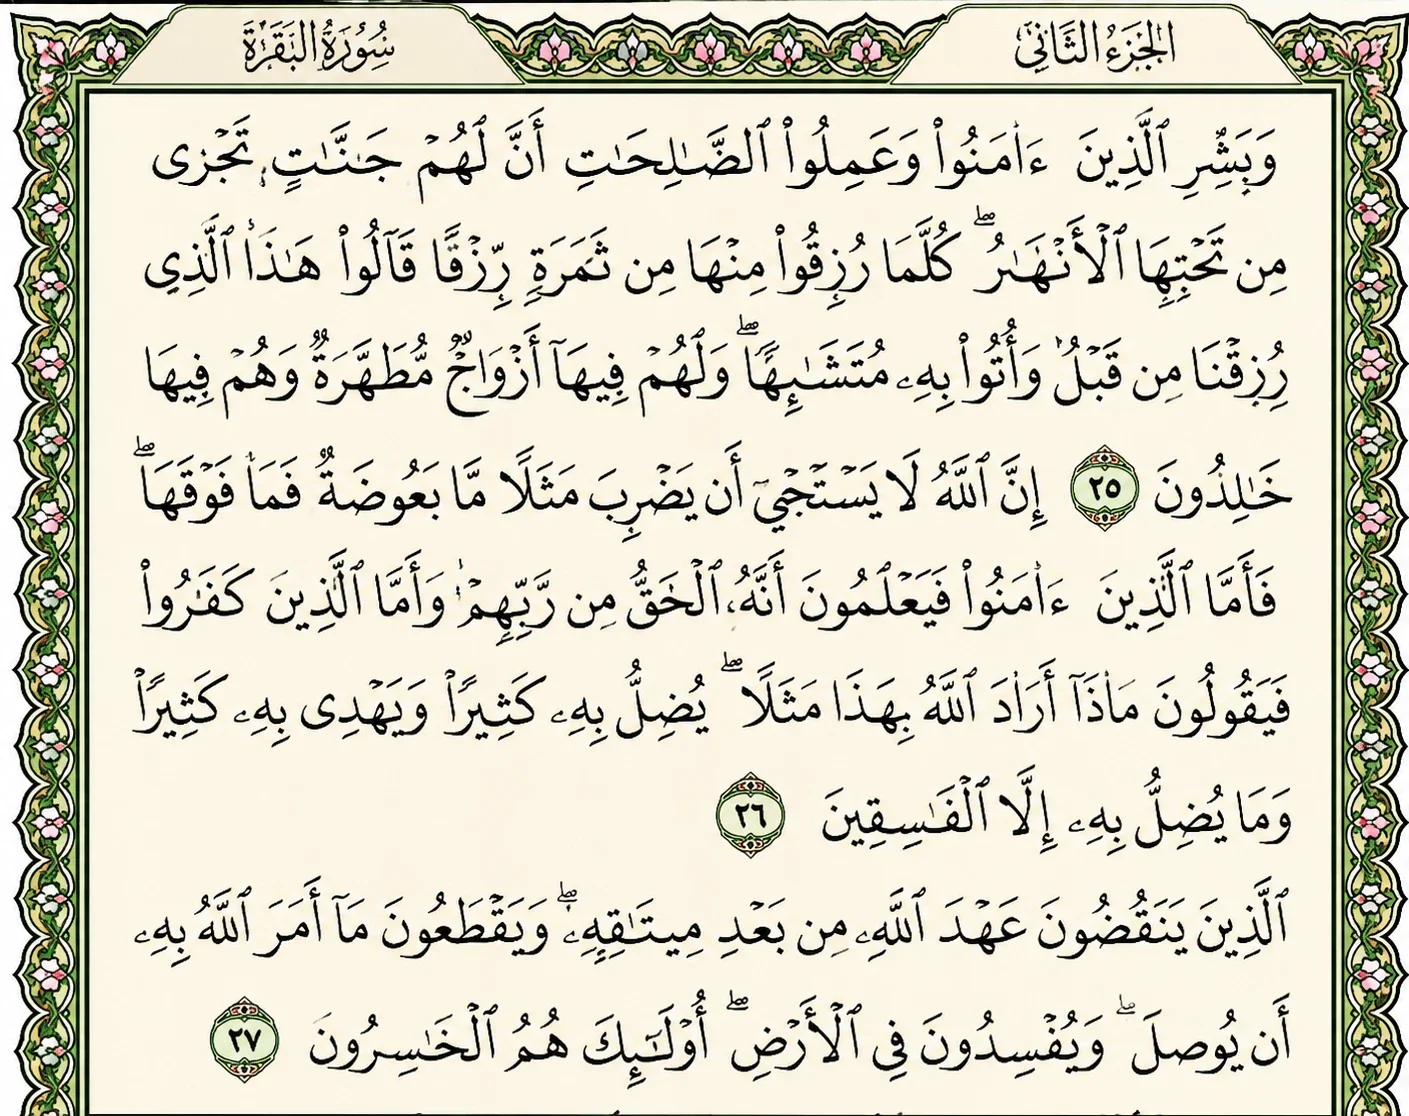 الجُزءُ الثَّانِي
سُورَةُ البَقَرَة
وَبَشِّرِ ٱلَّذِينَ ءَاٰمَنُواْ وَعَمِلُواْ ٱلصَّـٰلِحَـٰتِ أَنَّ لَهُمْ جَنَّـٰتٍ تَجْزِى
مِن تَحْتِهَا ٱلْأَنْهَـٰرُ ۖ كُلَّمَا رُزِقُواْ مِنْهَا مِن ثَمَرَةٍ رِّزْقًا قَالُواْ هَـٰذَا ٱلَّذِى
رُزِقْنَا مِن قَبْلُ وَأُتُواْ بِهِۦ مُتَشَـٰبِهًا ۖ وَلَهُمْ فِيهَآ أَزْوَاجٌ مُّطَهَّرَةٌ وَهُمْ فِيهَا
خَـٰلِدُونَ ٢٥ إِنَّ ٱللَّهَ لَا يَسْتَجْيِيٓ أَن يَضْرِبَ مَثَلًا مَّا بَعُوضَةً فَمَا فَوْقَهَا ۖ
فَأَمَّا ٱلَّذِينَ ءَاٰمَنُواْ فَيَعْلَمُونَ أَنَّهُ ٱلْخَقُّ مِن رَّبِّهِمْ وَأَمَّا ٱلَّذِينَ كَفَرُواْ
فَيَقُولُونَ مَاذَآ أَرَادَ ٱللَّهُ بِهَذَا مَثَلًا ۖ يُضِلُّ بِهِۦ كَثِيرًا وَيَهْدِى بِهِۦ كَثِيرًا
وَمَا يُضِلُّ بِهِۦ إِلَّا ٱلْفَـٰسِقِينَ ٢٦
ٱلَّذِينَ يَنَقُضُونَ عَهْدَ ٱللَّهِ مِن بَعْدِ مِيتَـٰقِهِۦ ۖ وَيَقْطَعُونَ مَآ أَمَرَ ٱللَّهُ بِهِۦ
أَن يُوصلَ ۖ وَيُفْسِدُونَ فِى ٱلْأَرْضِ ۖ أُوْلَـٰٓئِكَ هُمُ ٱلْخَـٰسِرُونَ ٢٧